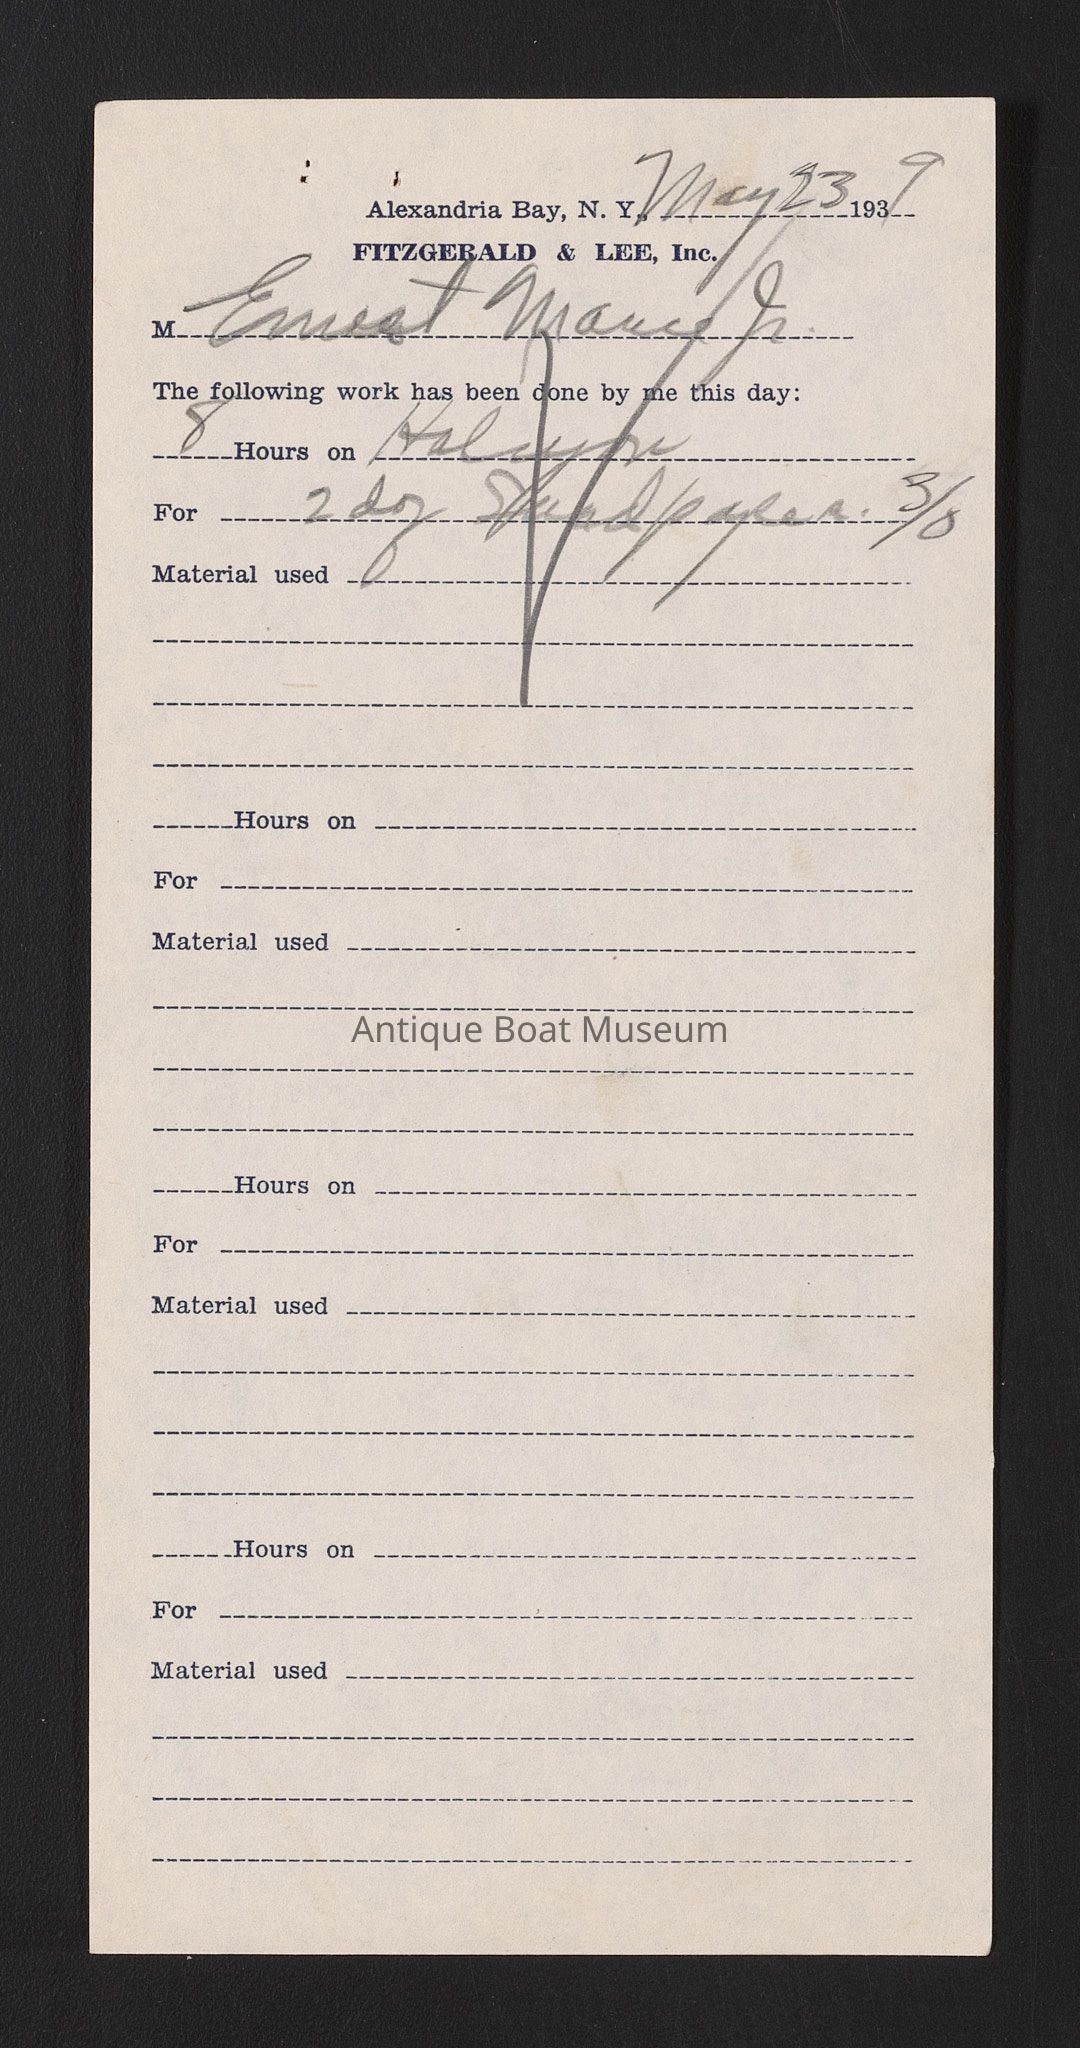 Alexandria Bay, N. Y., May 23 1939
FITZGERALD & LEE, Inc.
M Ernest Jr.
The following work has been done by me this day:
8 Hours on Halcyon
For 2 doz Sandpaper. 3/0
Material used
Hours on
For
Material used
Antique Boat Museum
Hours on
For
Material used
Hours on
For
Material used